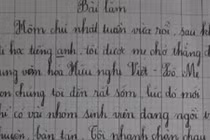 Bài làm
Hôm chủ nhật tuần vừa rồi, sau kh
i học tiếng anh, tôi được mẹ cho tháng d
ung văn hóa Hữu nghị Việt - Xô. Mẹ
con chúng tôi đến rất sớm, lúc đó mới
chỉ có vài nhóm sinh viên đang ngồi t
chuyện, bàn tán. Tôi nhanh chân chạy